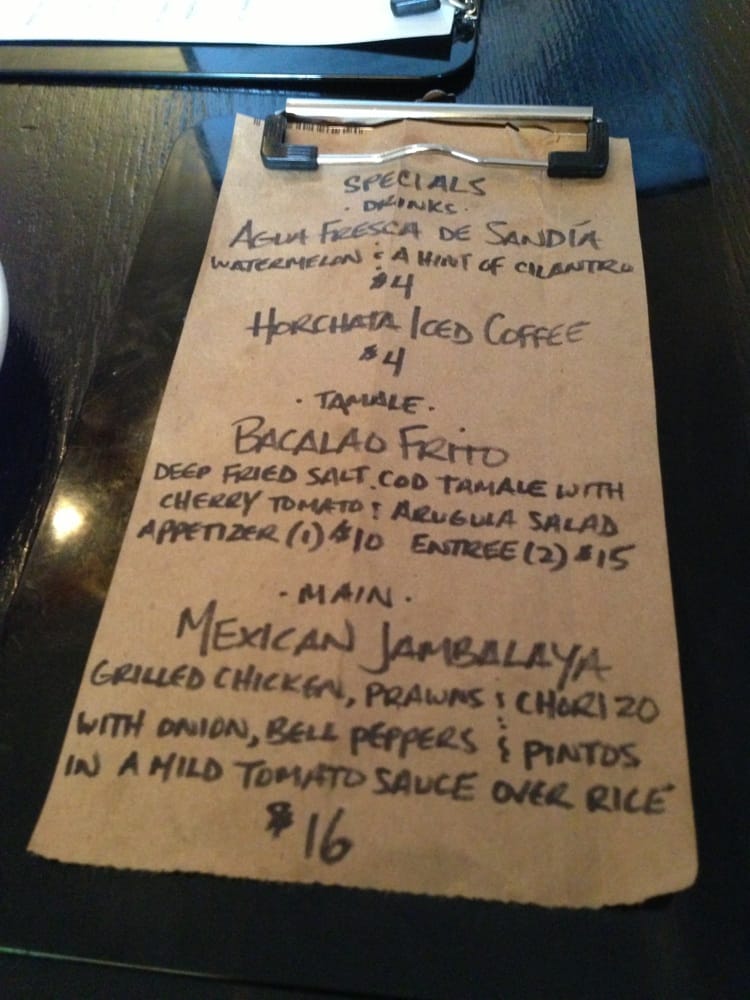 SPECIALS
· DRINKS ·
AGUA FRESCA DE SANDÍA
WATERMELON & A HINT OF CILANTRO
$4
HORCHATA ICED COFFEE
$4
· TAMALE ·
BACALAO FRITO
DEEP FRIED SALT COD TAMALE WITH
CHERRY TOMATO & ARUGULA SALAD
APPETIZER (1) $10 ENTREE (2) $15
· MAIN ·
MEXICAN JAMBALAYA
GRILLED CHICKEN, PRAWNS & CHORIZO
WITH ONION, BELL PEPPERS & PINTOS
IN A MILD TOMATO SAUCE OVER RICE
$16